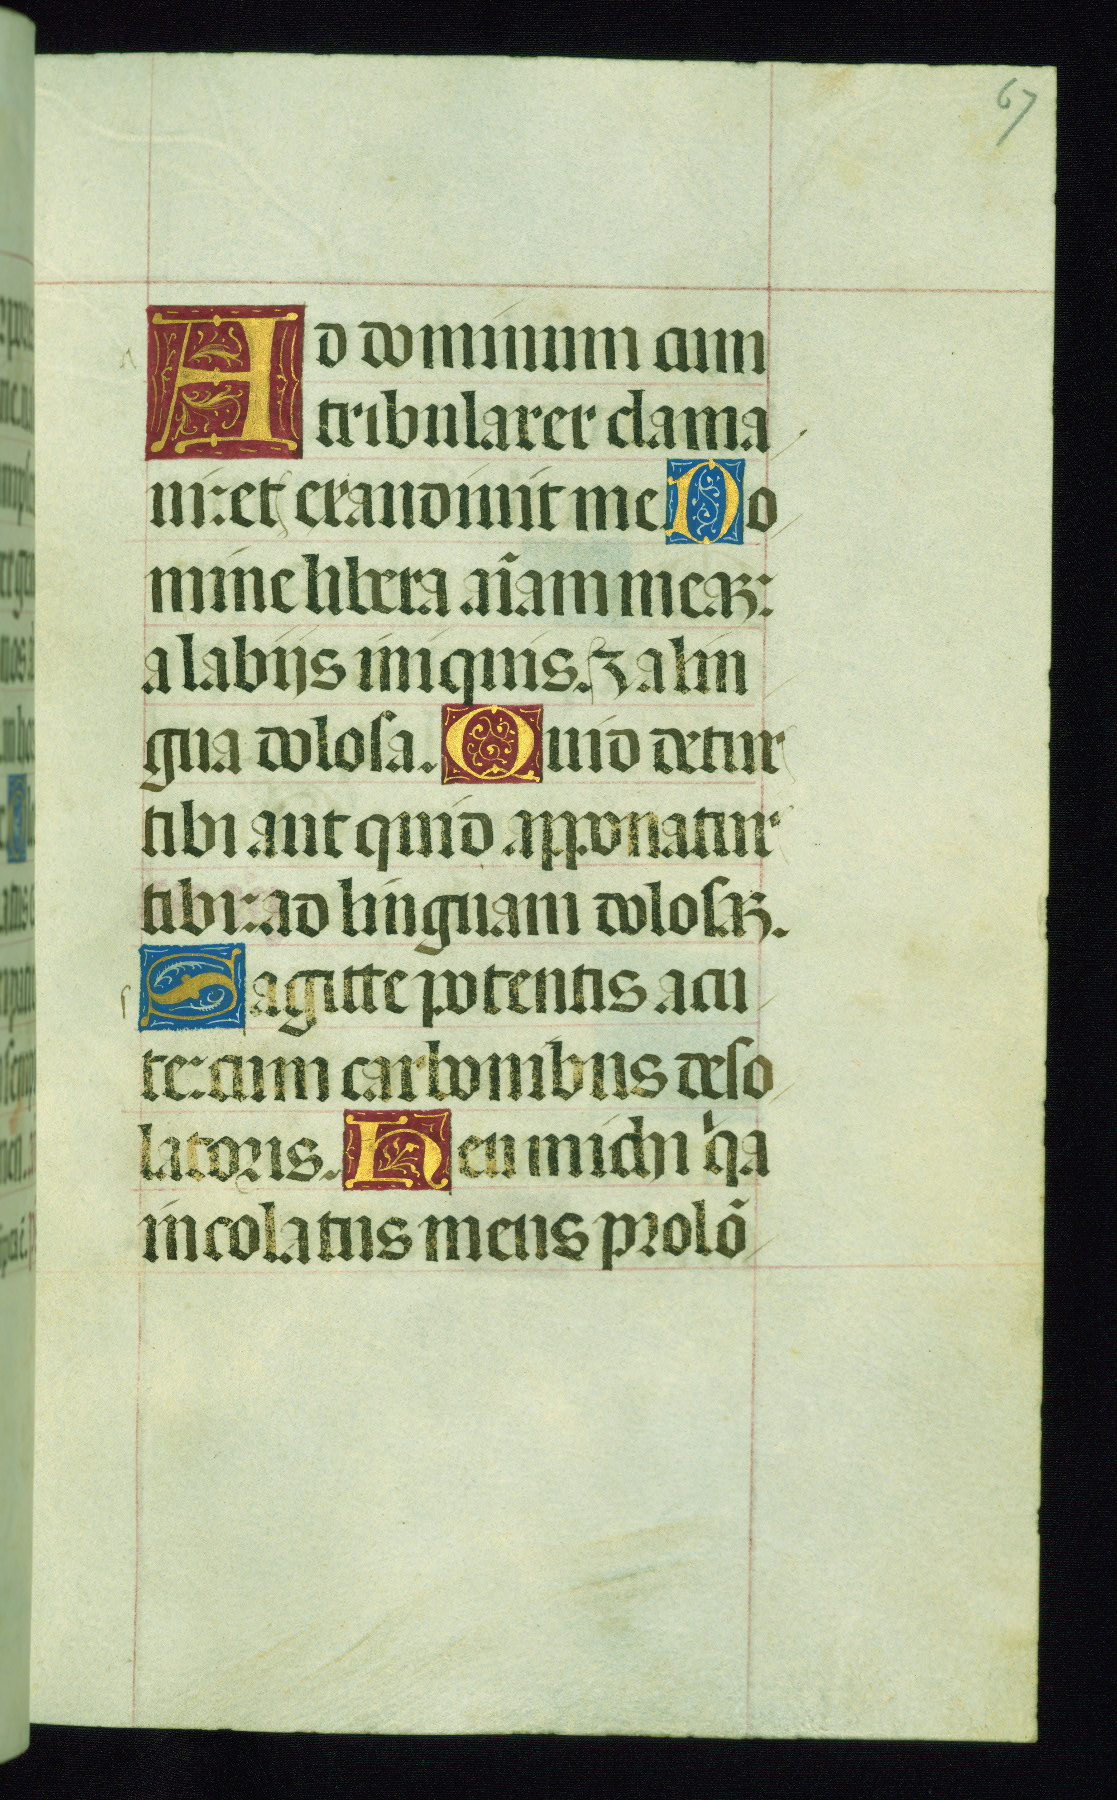 67
Ad dominum cum
tribularer clama
ui: et exaudiuit me. Do
mine libera aĩam meaʒ:
a labijs iniquis. ⁊ a lin
gua dolosa. Quid detur
tibi aut quid apponatur
tibi: ad linguam dolosaʒ.
Sagitte potentis acu
te: cum carbonibus deso
latoris. Heu michi q̇a
incolatus meus prolõ